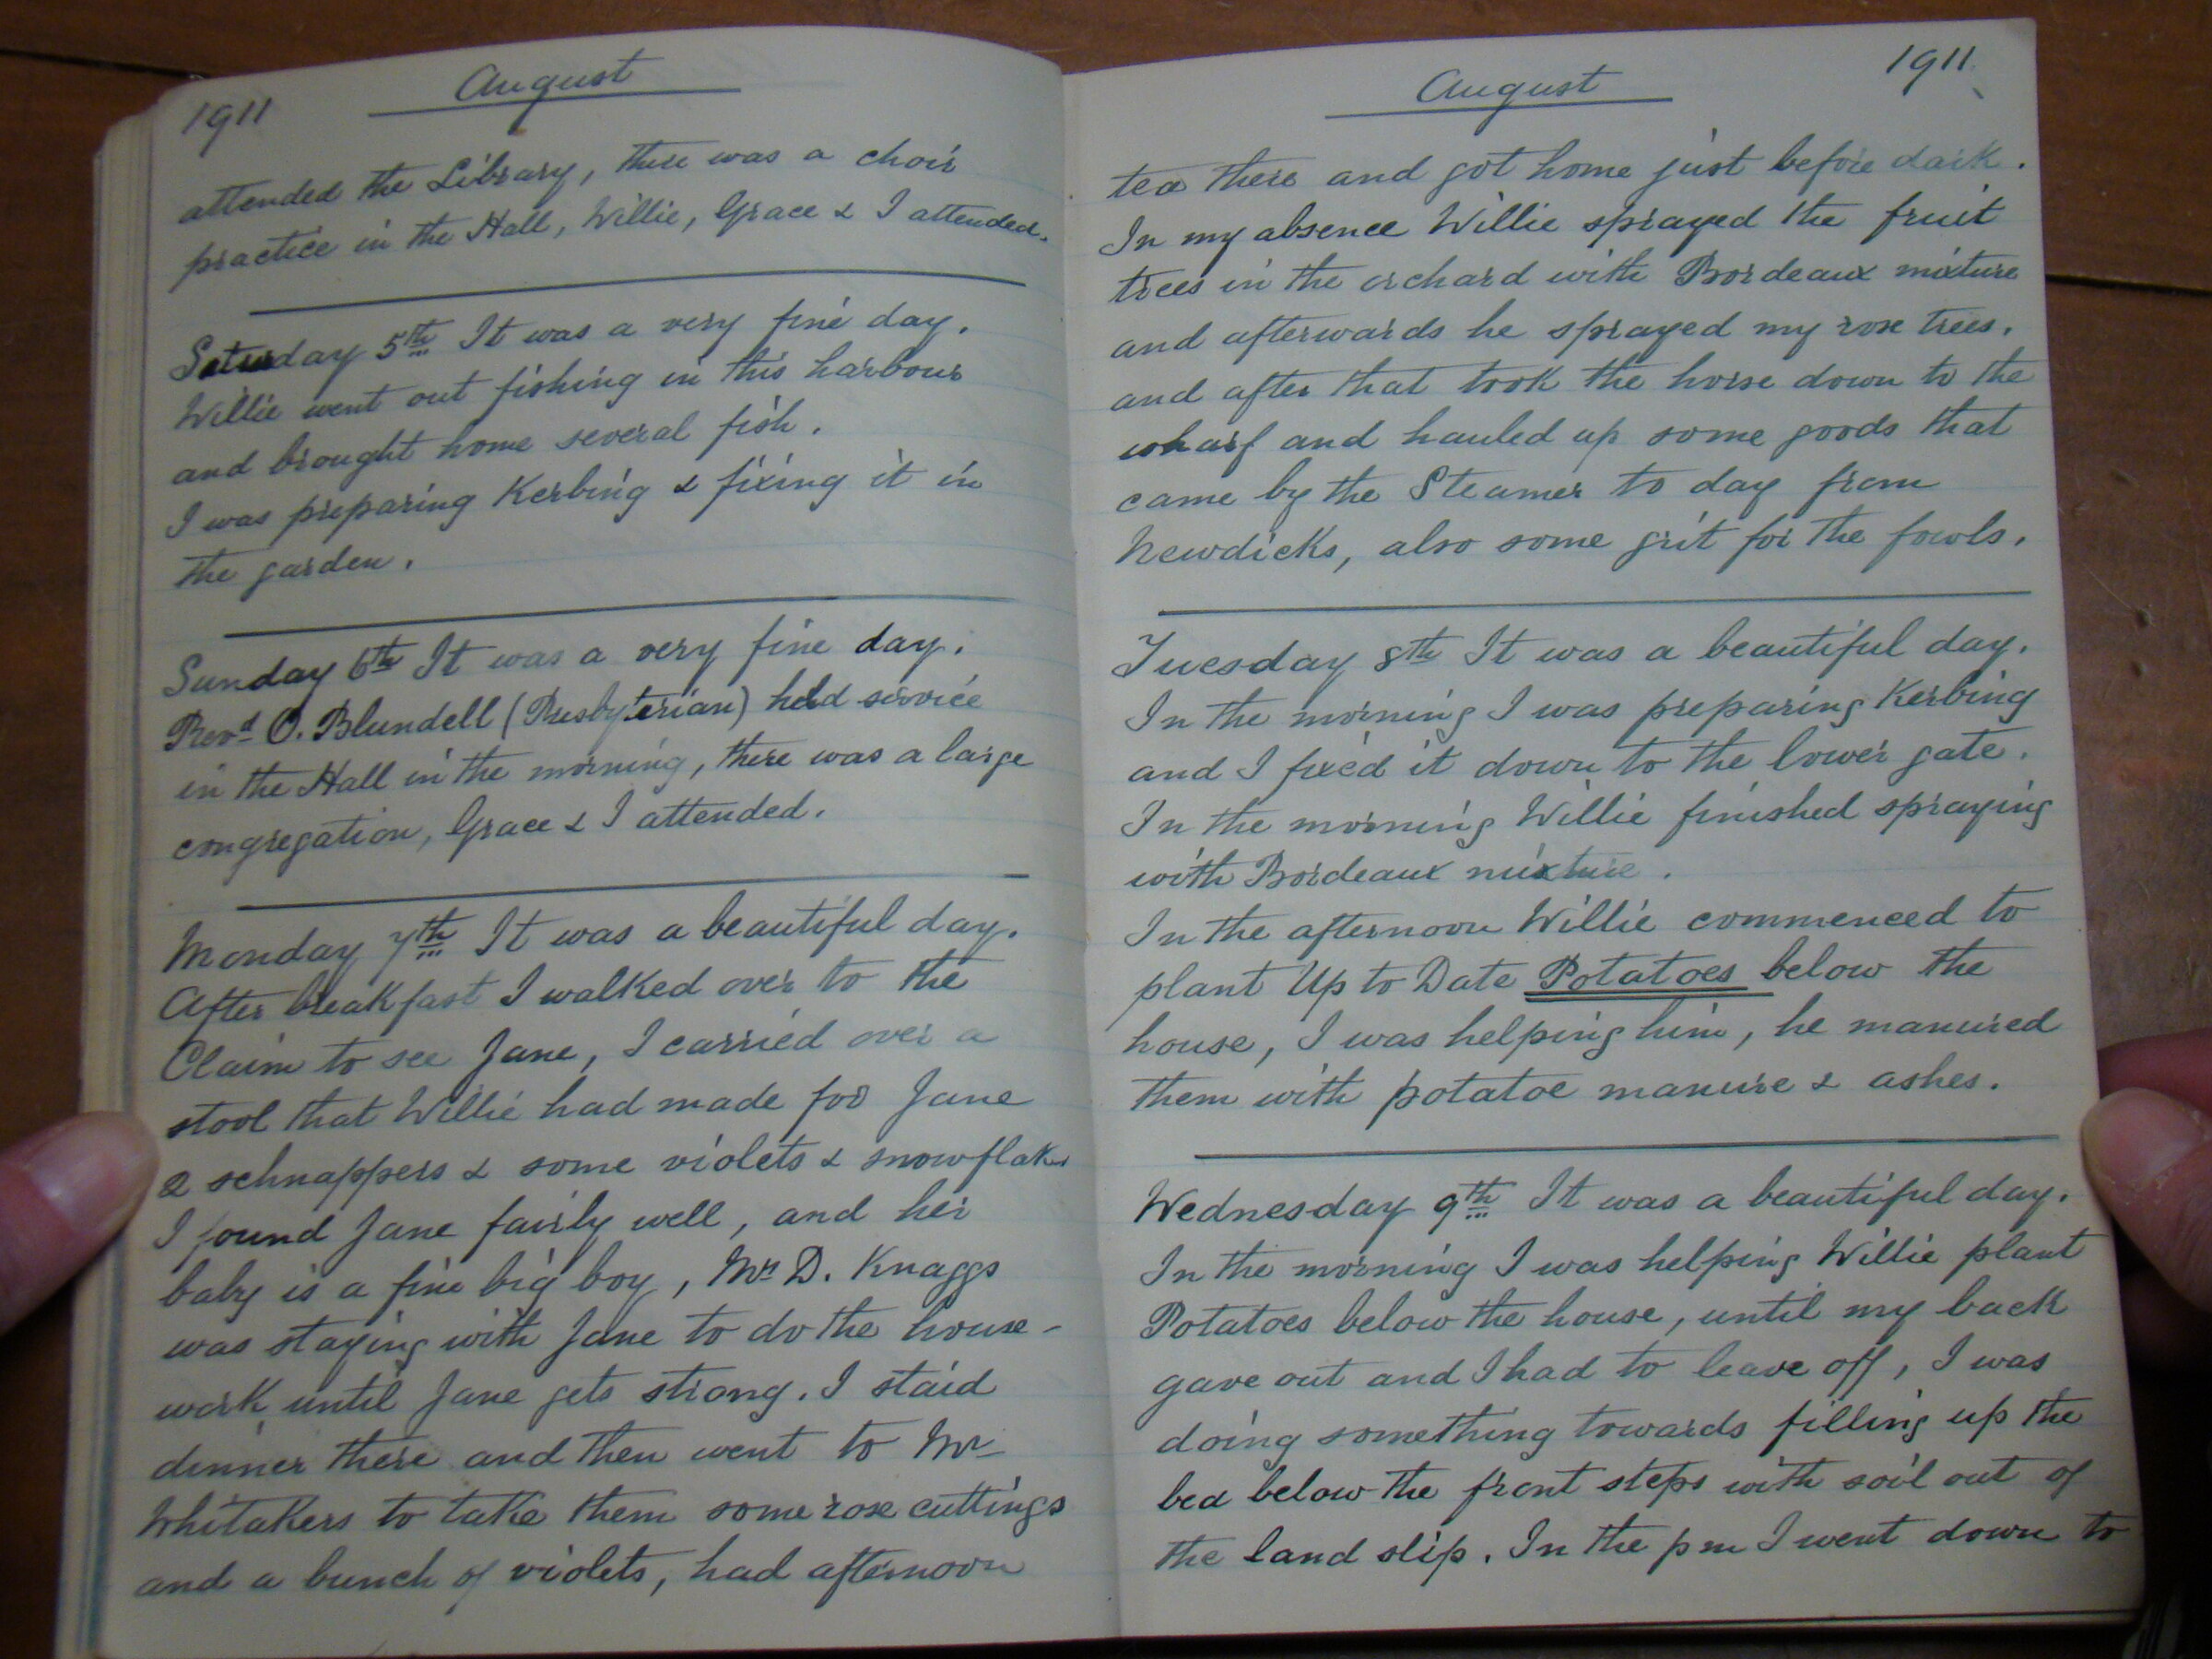 1911 August
attended the Library, there was a choir
practice in the Hall, Willie, Grace & I attended.
Saturday 5th It was a very fine day.
Willie went out fishing in this harbour
and brought home several fish.
I was preparing Kerbing & fixing it in
the garden.
Sunday 6th It was a very fine day.
Revd O. Blundell (Presbyterian) held service
in the Hall in the morning, there was a large
congregation, Grace & I attended.
Monday 7th It was a beautiful day.
After breakfast I walked over to the
Claim to see Jane, I carried over a
stool that Willie had made for Jane
2 schnappers & some violets & snowflakes
I found Jane fairly well, and her
baby is a fine big boy, Mrs D. Knaggs
was staying with Jane to do the house-
work until Jane gets strong. I staid
dinner there and then went to Mr
Whitakers to take them some rose cuttings
and a bunch of violets, had afternoon
August 1911
tea there and got home just before dark.
In my absence Willie sprayed the fruit
trees in the orchard with Bordeaux mixture
and afterwards he sprayed my rose trees.
and after that took the horse down to the
wharf and hauled up some goods that
came by the Steamer to day from
Newdicks, also some grit for the fowls.
Tuesday 8th It was a beautiful day.
In the morning I was preparing Kerbing
and I fixed it down to the lower gate.
In the morning Willie finished spraying
with Bordeaux mixture.
In the afternoon Willie commenced to
plant Up to Date Potatoes below the
house, I was helping him, he manured
them with potatoe manure & ashes.
Wednesday 9th It was a beautiful day.
In the morning I was helping Willie plant
Potatoes below the house, until my back
gave out and I had to leave off, I was
doing something towards filling up the
bed below the front steps with soil out of
the land slip. In the pm I went down to